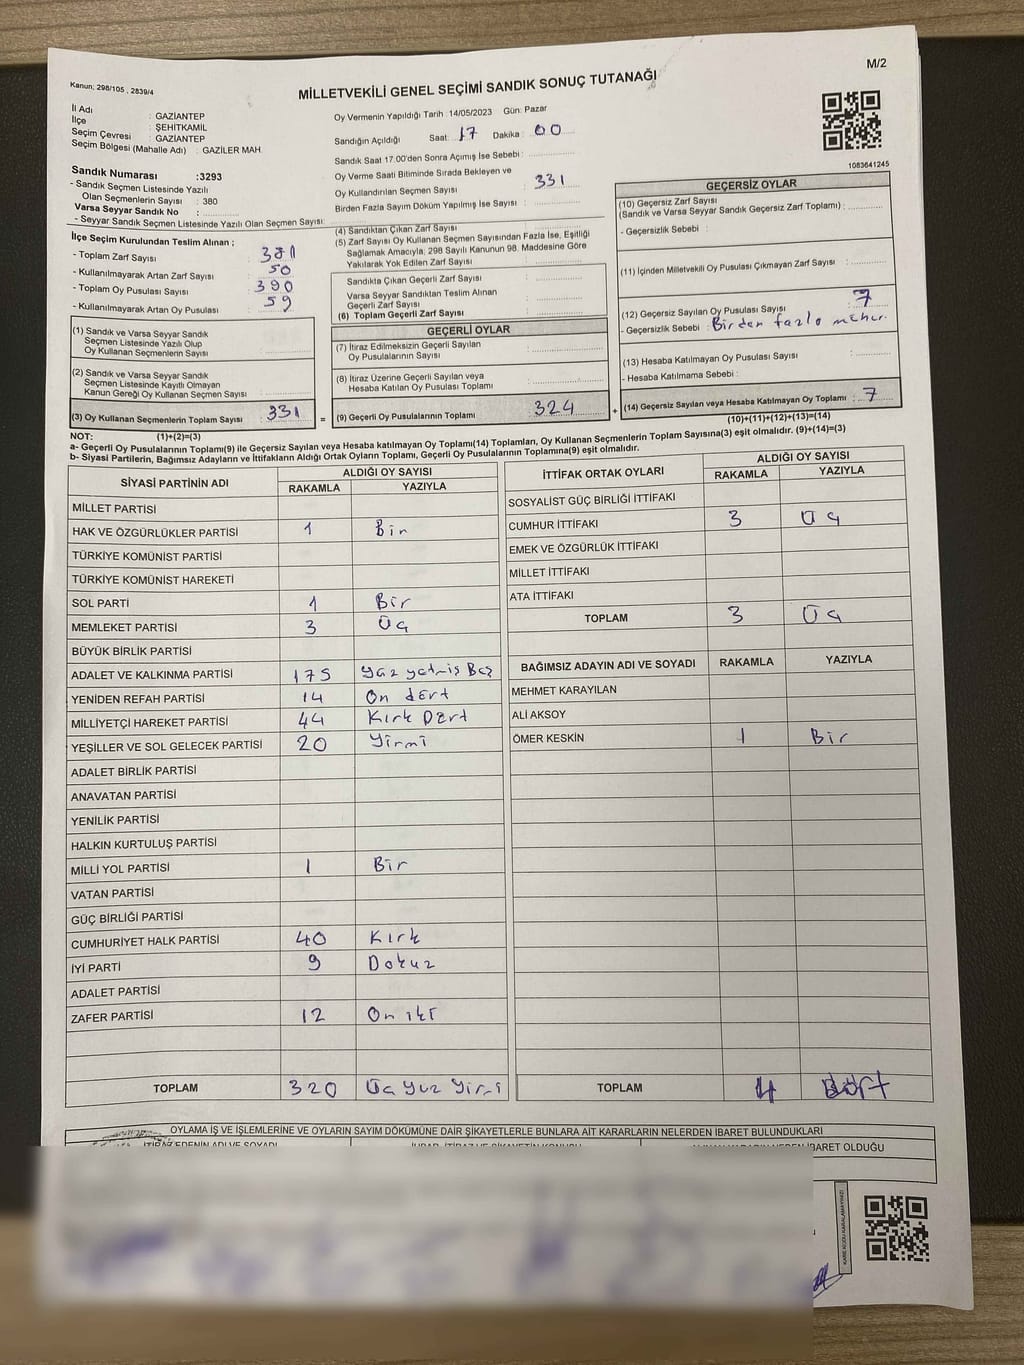 M/2
Kanun; 298/105 , 2839/4
MİLLETVEKİLİ GENEL SEÇİMİ SANDIK SONUÇ TUTANAĞI
İl Adı : GAZİANTEP
İlçe : ŞEHİTKAMİL
Seçim Çevresi : GAZİANTEP
Seçim Bölgesi (Mahalle Adı) : GAZİLER MAH.
Sandık Numarası :3293
- Sandık Seçmen Listesinde Yazılı
Olan Seçmenlerin Sayısı : 380
Varsa Seyyar Sandık No :
- Seyyar Sandık Seçmen Listesinde Yazılı Olan Seçmen Sayısı:
Oy Vermenin Yapıldığı Tarih :14/05/2023 Gün: Pazar
Sandığın Açıldığı Saat: 17 Dakika : 00
Sandık Saat 17.00'den Sonra Açımış İse Sebebi :
Oy Verme Saati Bitiminde Sırada Bekleyen ve
Oy Kullandırılan Seçmen Sayısı : 331
Birden Fazla Sayım Döküm Yapılmış İse Sayısı :
1083641245
İlçe Seçim Kurulundan Teslim Alınan ;
- Toplam Zarf Sayısı : 381
- Kullanılmayarak Artan Zarf Sayısı : 50
- Toplam Oy Pusulası Sayısı : 390
- Kullanılmayarak Artan Oy Pusulası : 59
(1) Sandık ve Varsa Seyyar Sandık
Seçmen Listesinde Yazılı Olup
Oy Kullanan Seçmenlerin Sayısı
(2) Sandık ve Varsa Seyyar Sandık
Seçmen Listesinde Kayıtlı Olmayan
Kanun Gereği Oy Kullanan Seçmen Sayısı
(3) Oy Kullanan Seçmenlerin Toplam Sayısı : 331
(1)+(2)=(3)
(4) Sandıktan Çıkan Zarf Sayısı
(5) Zarf Sayısı Oy Kullanan Seçmen Sayısından Fazla İse, Eşitliği
Sağlamak Amacıyla; 298 Sayılı Kanunun 98. Maddesine Göre
Yakılarak Yok Edilen Zarf Sayısı
Sandıkta Çıkan Geçerli Zarf Sayısı
Varsa Seyyar Sandıktan Teslim Alınan
Geçerli Zarf Sayısı
(6) Toplam Geçerli Zarf Sayısı
GEÇERLİ OYLAR
(7) İtiraz Edilmeksizin Geçerli Sayılan
Oy Pusulalarının Sayısı
(8) İtiraz Üzerine Geçerli Sayılan veya
Hesaba Katılan Oy Pusulası Toplamı
= (9) Geçerli Oy Pusulalarının Toplamı : 324
GEÇERSİZ OYLAR
(10) Geçersiz Zarf Sayısı
(Sandık ve Varsa Seyyar Sandık Geçersiz Zarf Toplamı) :
- Geçersizlik Sebebi :
(11) İçinden Milletvekili Oy Pusulası Çıkmayan Zarf Sayısı :
(12) Geçersiz Sayılan Oy Pusulası Sayısı : 7
- Geçersizlik Sebebi : Birden fazla mühür.
(13) Hesaba Katılmayan Oy Pusulası Sayısı :
- Hesaba Katılmama Sebebi :
+ (14) Geçersiz Sayılan veya Hesaba Katılmayan Oy Toplamı : 7
(10)+(11)+(12)+(13)=(14)
NOT:
a- Geçerli Oy Pusulalarının Toplamı(9) ile Geçersiz Sayılan veya Hesaba katılmayan Oy Toplamı(14) Toplamları, Oy Kullanan Seçmenlerin Toplam Sayısına(3) eşit olmalıdır. (9)+(14)=(3)
b- Siyasi Partilerin, Bağımsız Adayların ve İttifakların Aldığı Ortak Oyların Toplamı, Geçerli Oy Pusulalarının Toplamına(9) eşit olmalıdır.
SİYASİ PARTİNİN ADI ALDIĞI OY SAYISI
RAKAMLA YAZIYLA
MİLLET PARTİSİ
HAK VE ÖZGÜRLÜKLER PARTİSİ 1 Bir
TÜRKİYE KOMÜNİST PARTİSİ
TÜRKİYE KOMÜNİST HAREKETİ
SOL PARTİ 1 Bir
MEMLEKET PARTİSİ 3 Üç
BÜYÜK BİRLİK PARTİSİ
ADALET VE KALKINMA PARTİSİ 175 Yüz yetmiş Beş
YENİDEN REFAH PARTİSİ 14 On dört
MİLLİYETÇİ HAREKET PARTİSİ 44 Kırk Dört
YEŞİLLER VE SOL GELECEK PARTİSİ 20 Yirmi
ADALET BİRLİK PARTİSİ
ANAVATAN PARTİSİ
YENİLİK PARTİSİ
HALKIN KURTULUŞ PARTİSİ
MİLLİ YOL PARTİSİ 1 Bir
VATAN PARTİSİ
GÜÇ BİRLİĞİ PARTİSİ
CUMHURİYET HALK PARTİSİ 40 Kırk
İYİ PARTİ 9 Dokuz
ADALET PARTİSİ
ZAFER PARTİSİ 12 On iki
TOPLAM 320 Üç Yüz Yirmi
İTTİFAK ORTAK OYLARI ALDIĞI OY SAYISI
RAKAMLA YAZIYLA
SOSYALİST GÜÇ BİRLİĞİ İTTİFAKI
CUMHUR İTTİFAKI 3 Üç
EMEK VE ÖZGÜRLÜK İTTİFAKI
MİLLET İTTİFAKI
ATA İTTİFAKI
TOPLAM 3 Üç
BAĞIMSIZ ADAYIN ADI VE SOYADI RAKAMLA YAZIYLA
MEHMET KARAYILAN
ALİ AKSOY
ÖMER KESKİN 1 Bir
TOPLAM 4 Dört
OYLAMA İŞ VE İŞLEMLERİNE VE OYLARIN SAYIM DÖKÜMÜNE DAİR ŞİKAYETLERLE BUNLARA AİT KARARLARIN NELERDEN İBARET BULUNDUKLARI
İTİRAZ EDENİN ADI VE SOYADI
İBARET OLDUĞU
KARE KODU KARALAMAYINIZ!